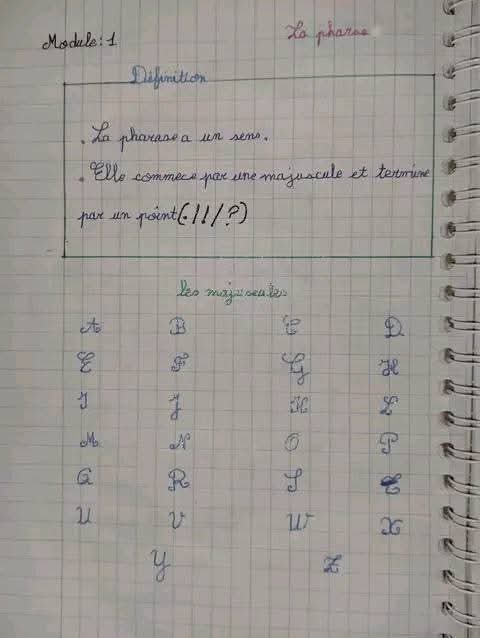 Module: 1
La pharse
Définition
. La pharase a un sens.
. Elle commece par une majuscule et termine
par un point (. / ! / ?)
les majuscules
A B C D
E F G H
I J K L
M N O P
Q R S
U V W X
Y Z